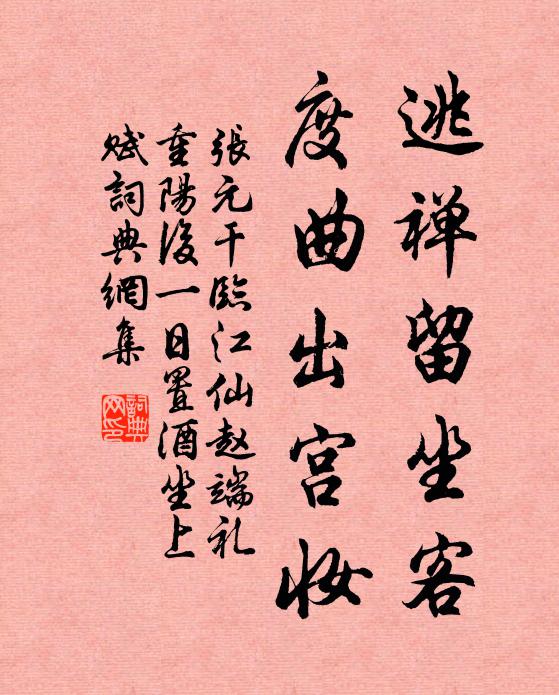 逃禅留坐客
度曲出宫妆
張元干臨江仙赵端礼
重陽後一日置酒坐上
赋詞典網集
詞典网印